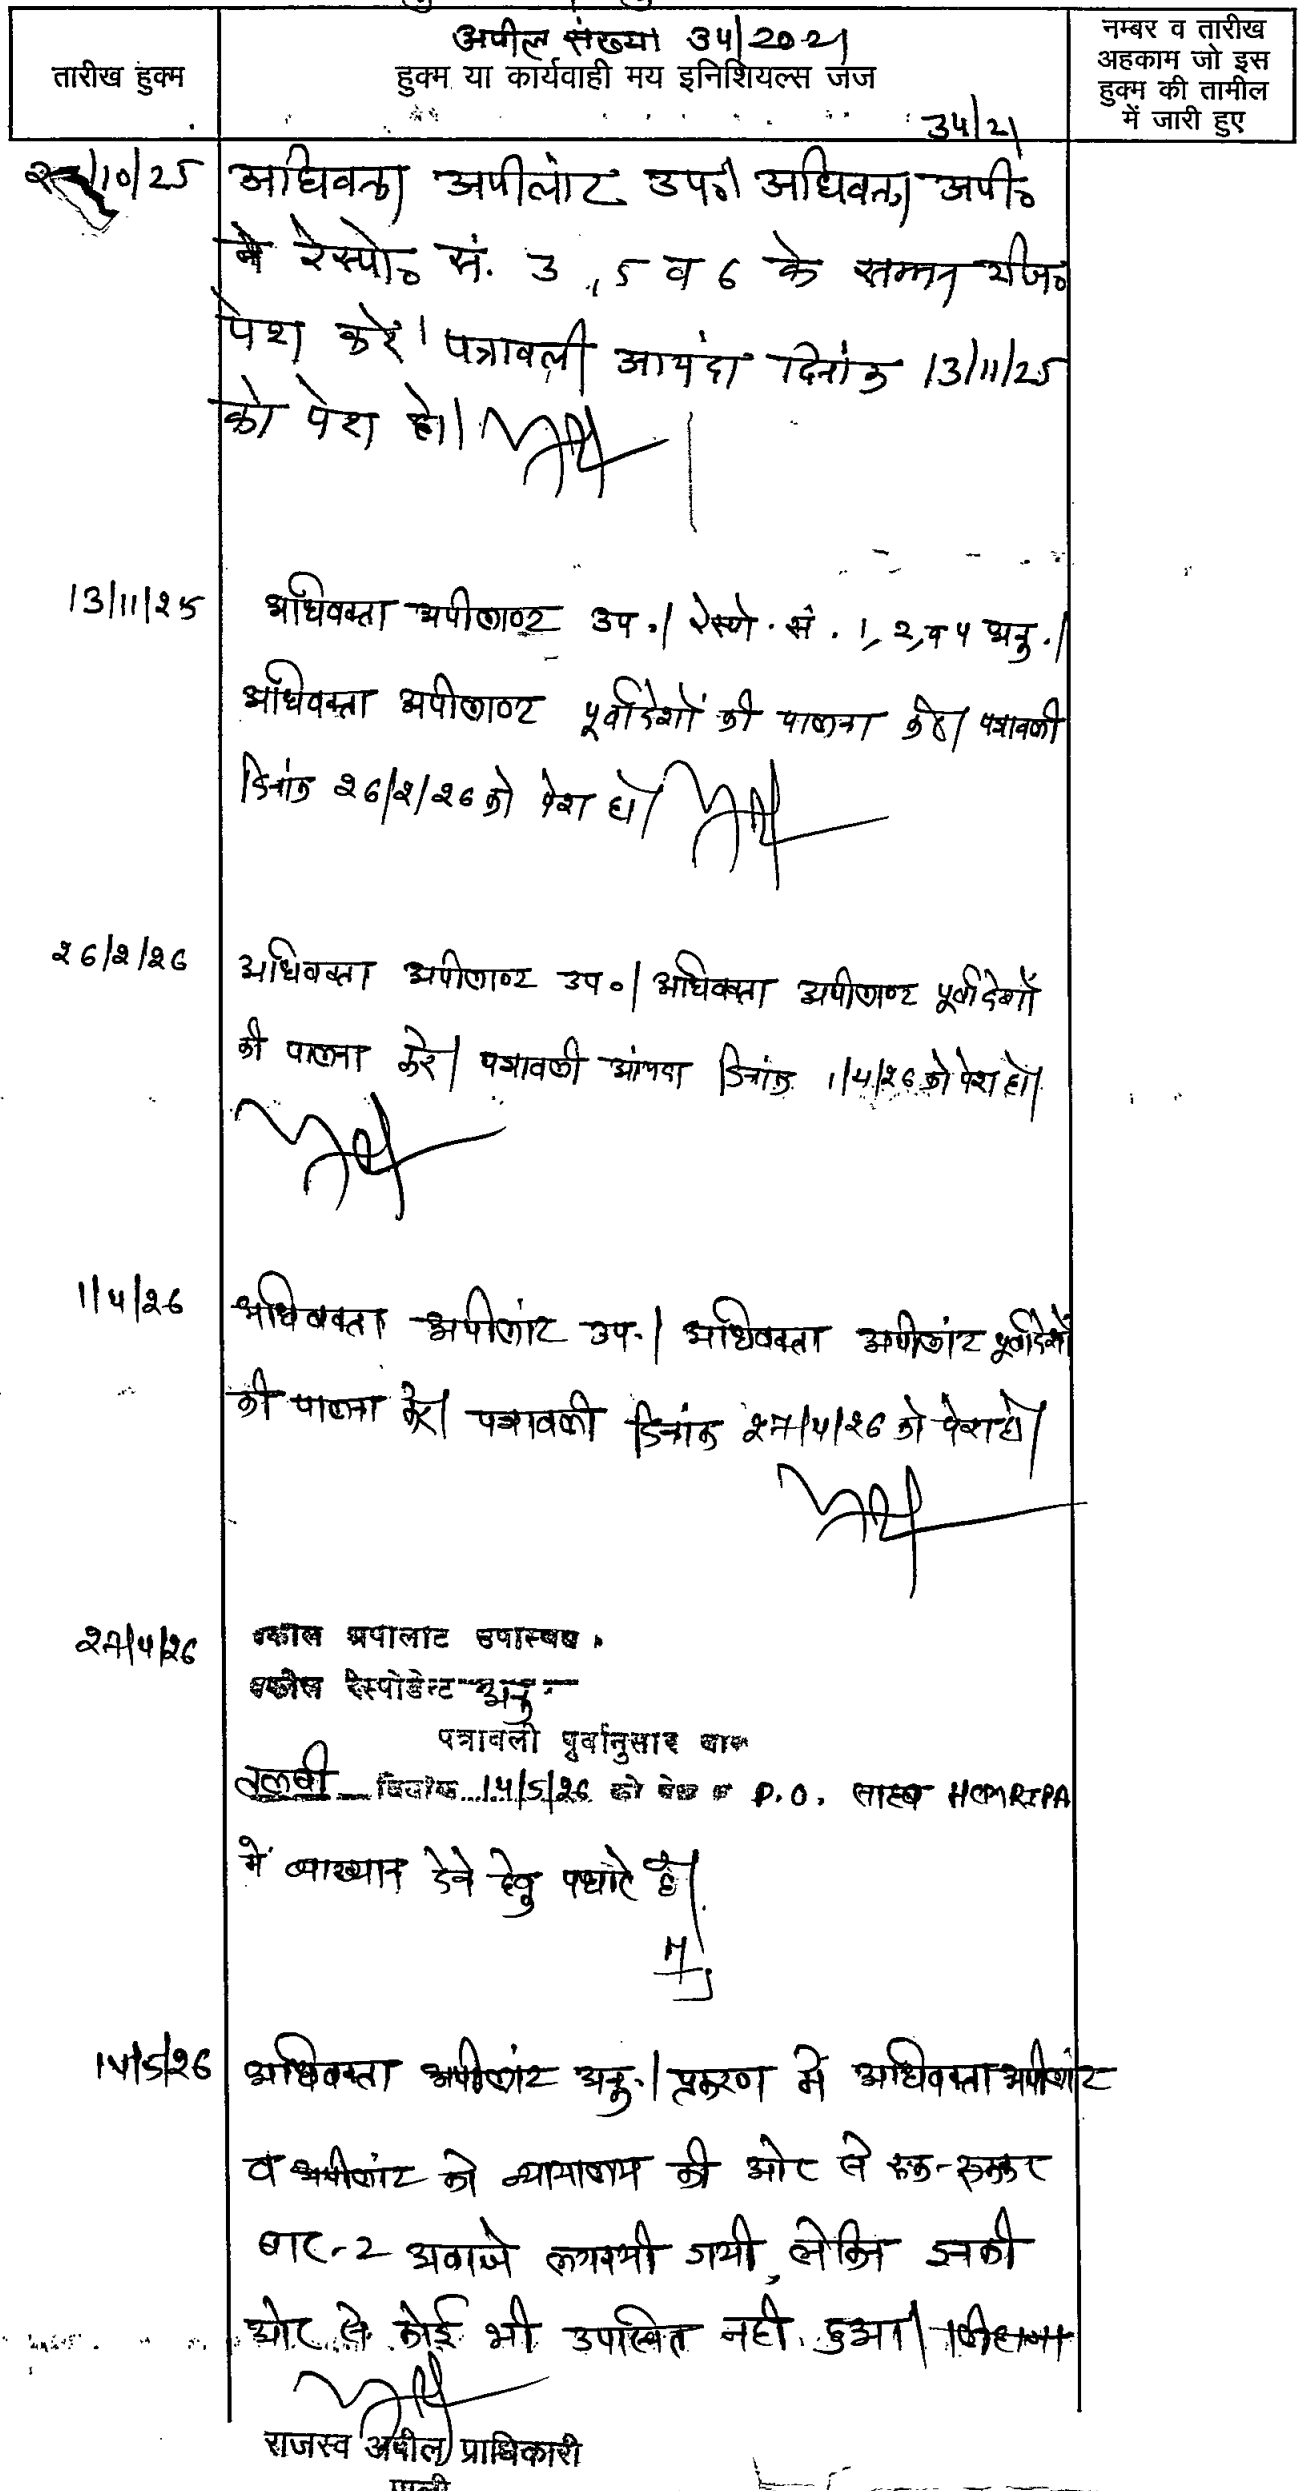 अपील संख्या 34/2021
तारीख हुक्म
हुक्म या कार्यवाही मय इनिशियल्स जज
नम्बर व तारीख
अहकाम जो इस
हुक्म की तामील
में जारी हुए
34/21
/10/25 अधिवक्ता अपीलांट उप०। अधिवक्ता अपी०
रेस्पो० सं. 3, 5 व 6 के सम्मन रजि०
पेश करें। पत्रावली आयंदा दिनांक 13/11/25
को पेश हो।
13/11/25 अधिवक्ता अपीलाण्ट उप.। रेस्पो. सं. 1, 2, व 4 अनु.।
अधिवक्ता अपीलाण्ट पूर्वादेशों की पालना करें। पत्रावली
दिनांक 26/2/26 को पेश हो।
26/2/26 अधिवक्ता अपीलाण्ट उप०। अधिवक्ता अपीलाण्ट पूर्वादेशों
की पालना करे। पत्रावली आंयदा दिनांक 1/4/26 को पेश हो।
1/4/26 अधिवक्ता अपीलांट उप.। अधिवक्ता अपीलांट पूर्वादेशों
की पालना करे। पत्रावली दिनांक 27/4/26 को पेश हो।
27/4/26 वकील अपीलांट उपस्थित
वकील रेस्पोडेन्ट अनु.
पत्रावली पूर्वानुसार वास्ते
तलबी दिनांक 14/5/26 को पेश हो P.O. साहब HCMRIPA
में व्याख्यान देने हेतु पधारे है।
14/5/26 अधिवक्ता अपीलांट अनु.। प्रकरण में अधिवक्ता अपीलांट
व अपीलांट को न्यायालय की ओर से रूक-रूककर
बार-2 आवाजे लगायी गयी, लेकिन इनकी
ओर से कोई भी उपस्थित नहीं हुआ। लिहाजा
राजस्व अपील प्राधिकारी
पाली